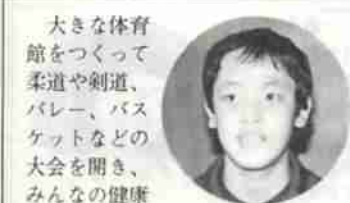 大きな体育
館をつくって
柔道や剣道、
バレー、バス
ケットなどの
大会を開き、
みんなの健康